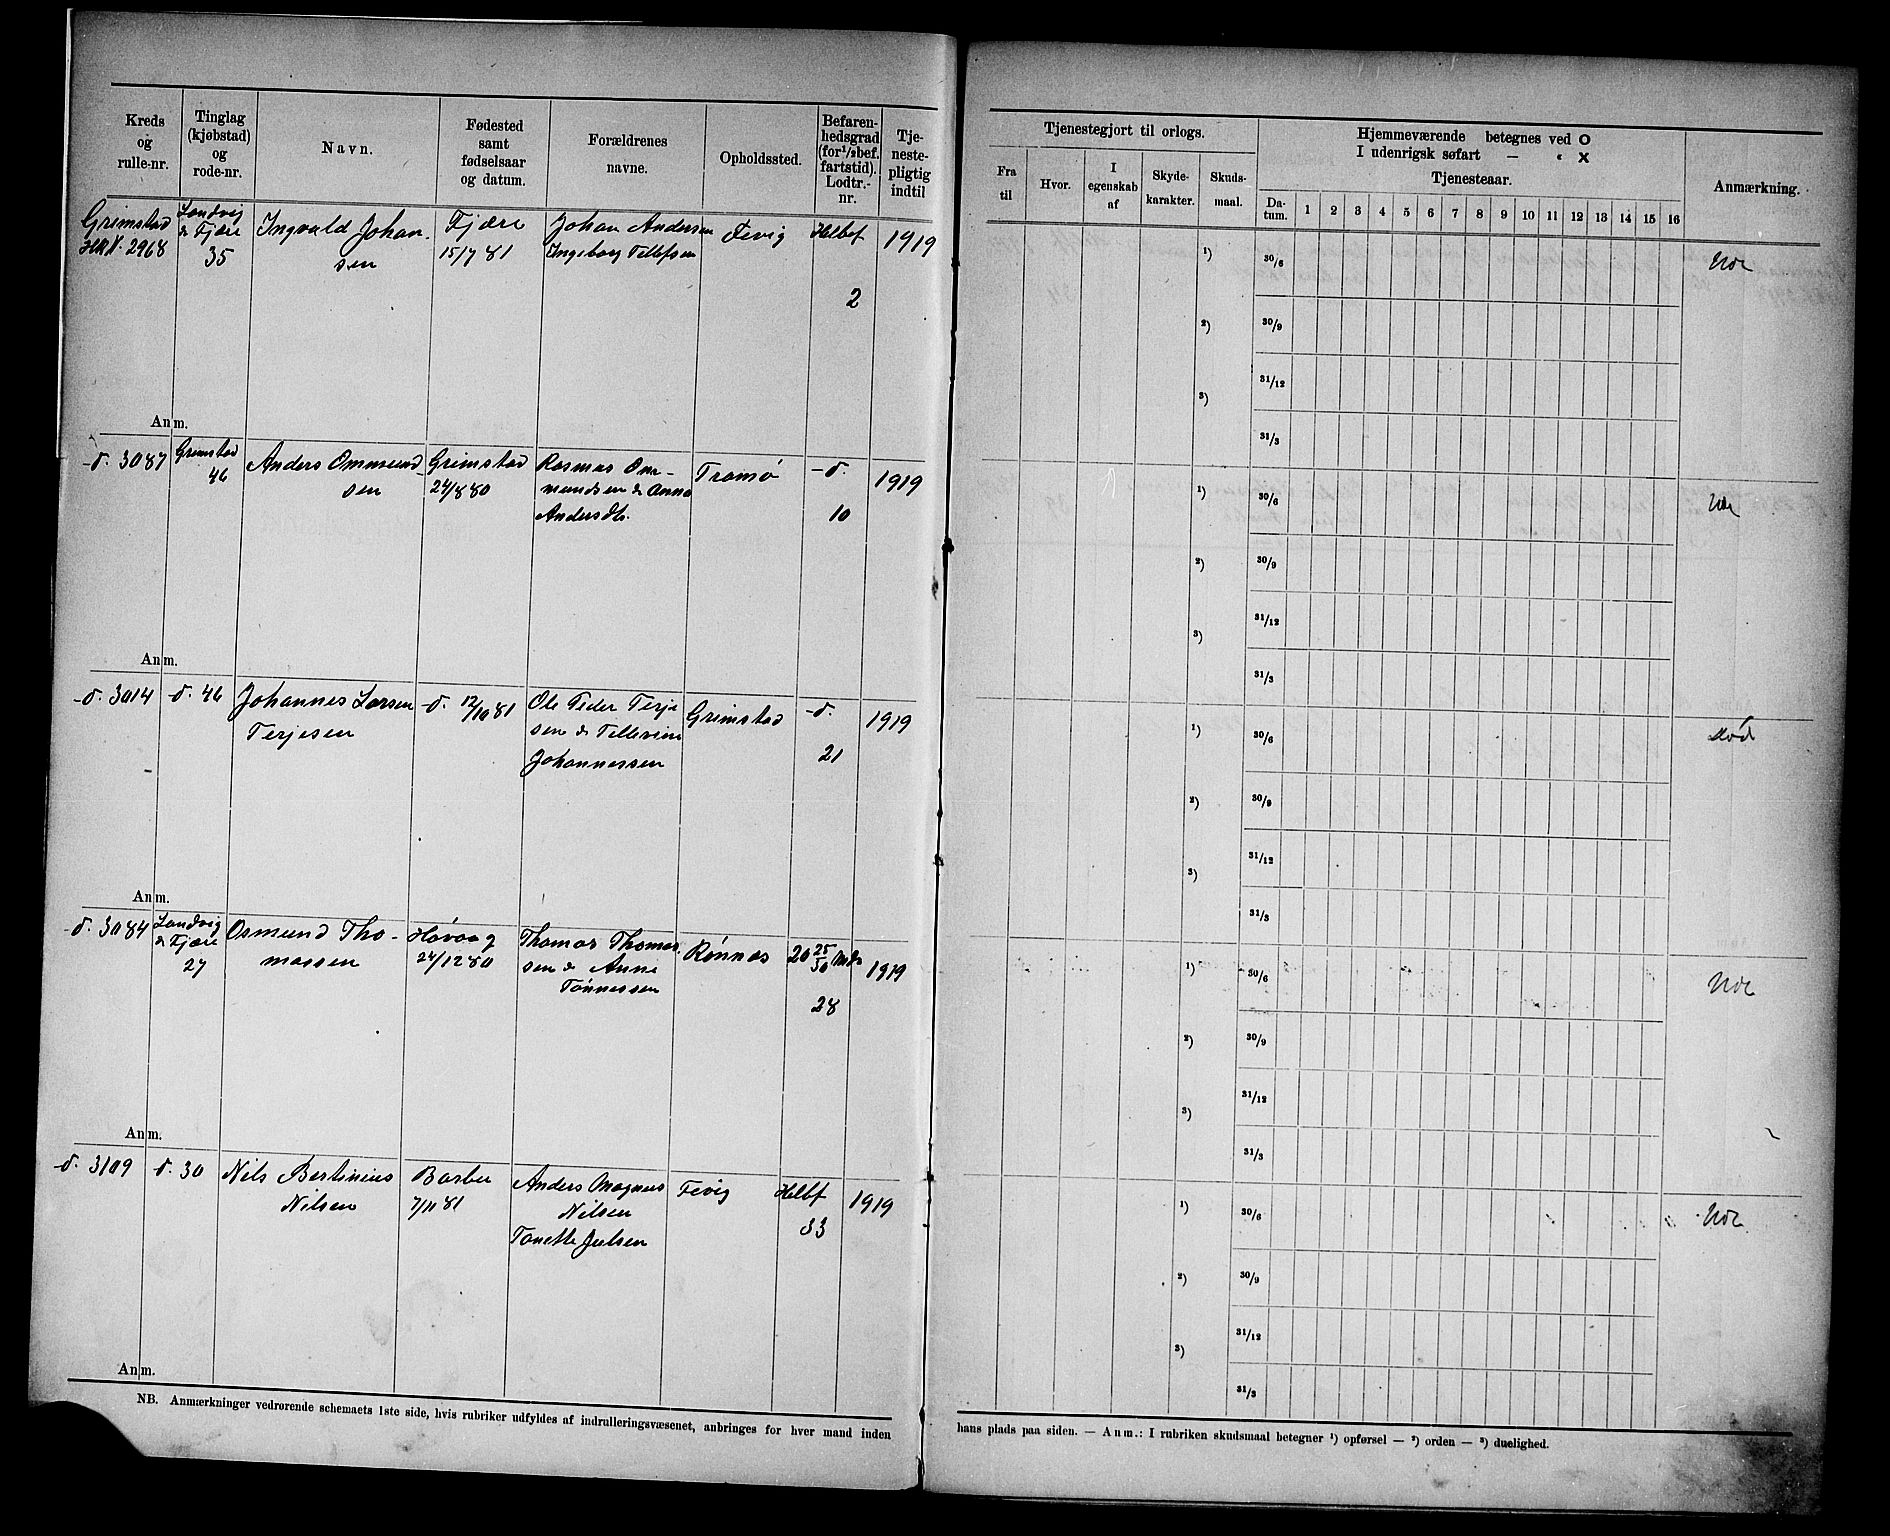 Kreds
og
rulle-nr.
Tinglag
(kjøbstad)
og
rode-nr.
Navn.
Fødested
samt
fødselsaar
og datum.
Forældrenes
navne.
Opholdssted.
Befaren-
hedsgrad
(for 1/2 bef.
fartstid).
Lodtr.-
nr.
Tje-
neste-
pligtig
indtil
Grimstad
2968
Landvig
& Fjære
35
Ingvald Johan-
sen
Fjære
15/7 81
Johan Andersen
Ingeborg Tellefsen
Fevig
Helbf
2
1919
Anm.
-d. 3087
Grimstad
46
Anders Ommund-
sen
Grimstad
24/8 80
Rasmus Om-
mundsen & Anna
Andersdtr.
Tromø
-d.
10
1919
Anm.
-d. 3014
-d. 46
Johannes Larsen
Terjesen
-d. 12/10 81
Ole Peder Terje
sen & Tellevine
Johannessen
Grimstad
-d.
21
1919
Anm.
-d. 3084
Landvig
& Fjære
27
Osmund Tho-
massen
Høvaag
24/12 80
Thomas Thomas-
sen & Anne
Tønnessen
Rønnes
20 25/30 Mdr
28
1919
Anm.
-d. 3109
d. 30
Nils Bertinius
Nilsen
Barbu
7/11 81
Anders Magnus
Nilsen
Tonette Julsen
Fevig
Helbf
33
1919
Anm.
NB. Anmærkninger vedrørende schemaets 1ste side, hvis rubriker udfyldes af indrulleringsvæsenet, anbringes for hver mand inden
Tjenestegjort til orlogs.
Fra
til
Hvor.
I
egenskab
af
Skyde-
karakter.
Skuds-
maal.
Hjemmeværende betegnes ved O
I udenrigsk søfart — " X
Tjenesteaar.
Da-
tum.
1 2 3 4 5 6 7 8 9 10 11 12 13 14 15 16
Anmærkning.
1) 30/6
Ude
2) 30/9
31/12
3)
31/3
1) 30/6
Ude
2) 30/9
31/12
3)
31/3
1) 30/6
død
2) 30/9
31/12
3)
31/3
1) 30/6
Ude
2) 30/9
31/12
3)
31/3
1) 30/6
Ude
2) 30/9
31/12
3)
31/3
hans plads paa siden. — Anm.: I rubriken skudsmaal betegner 1) opførsel — 2) orden — 3) duelighed.